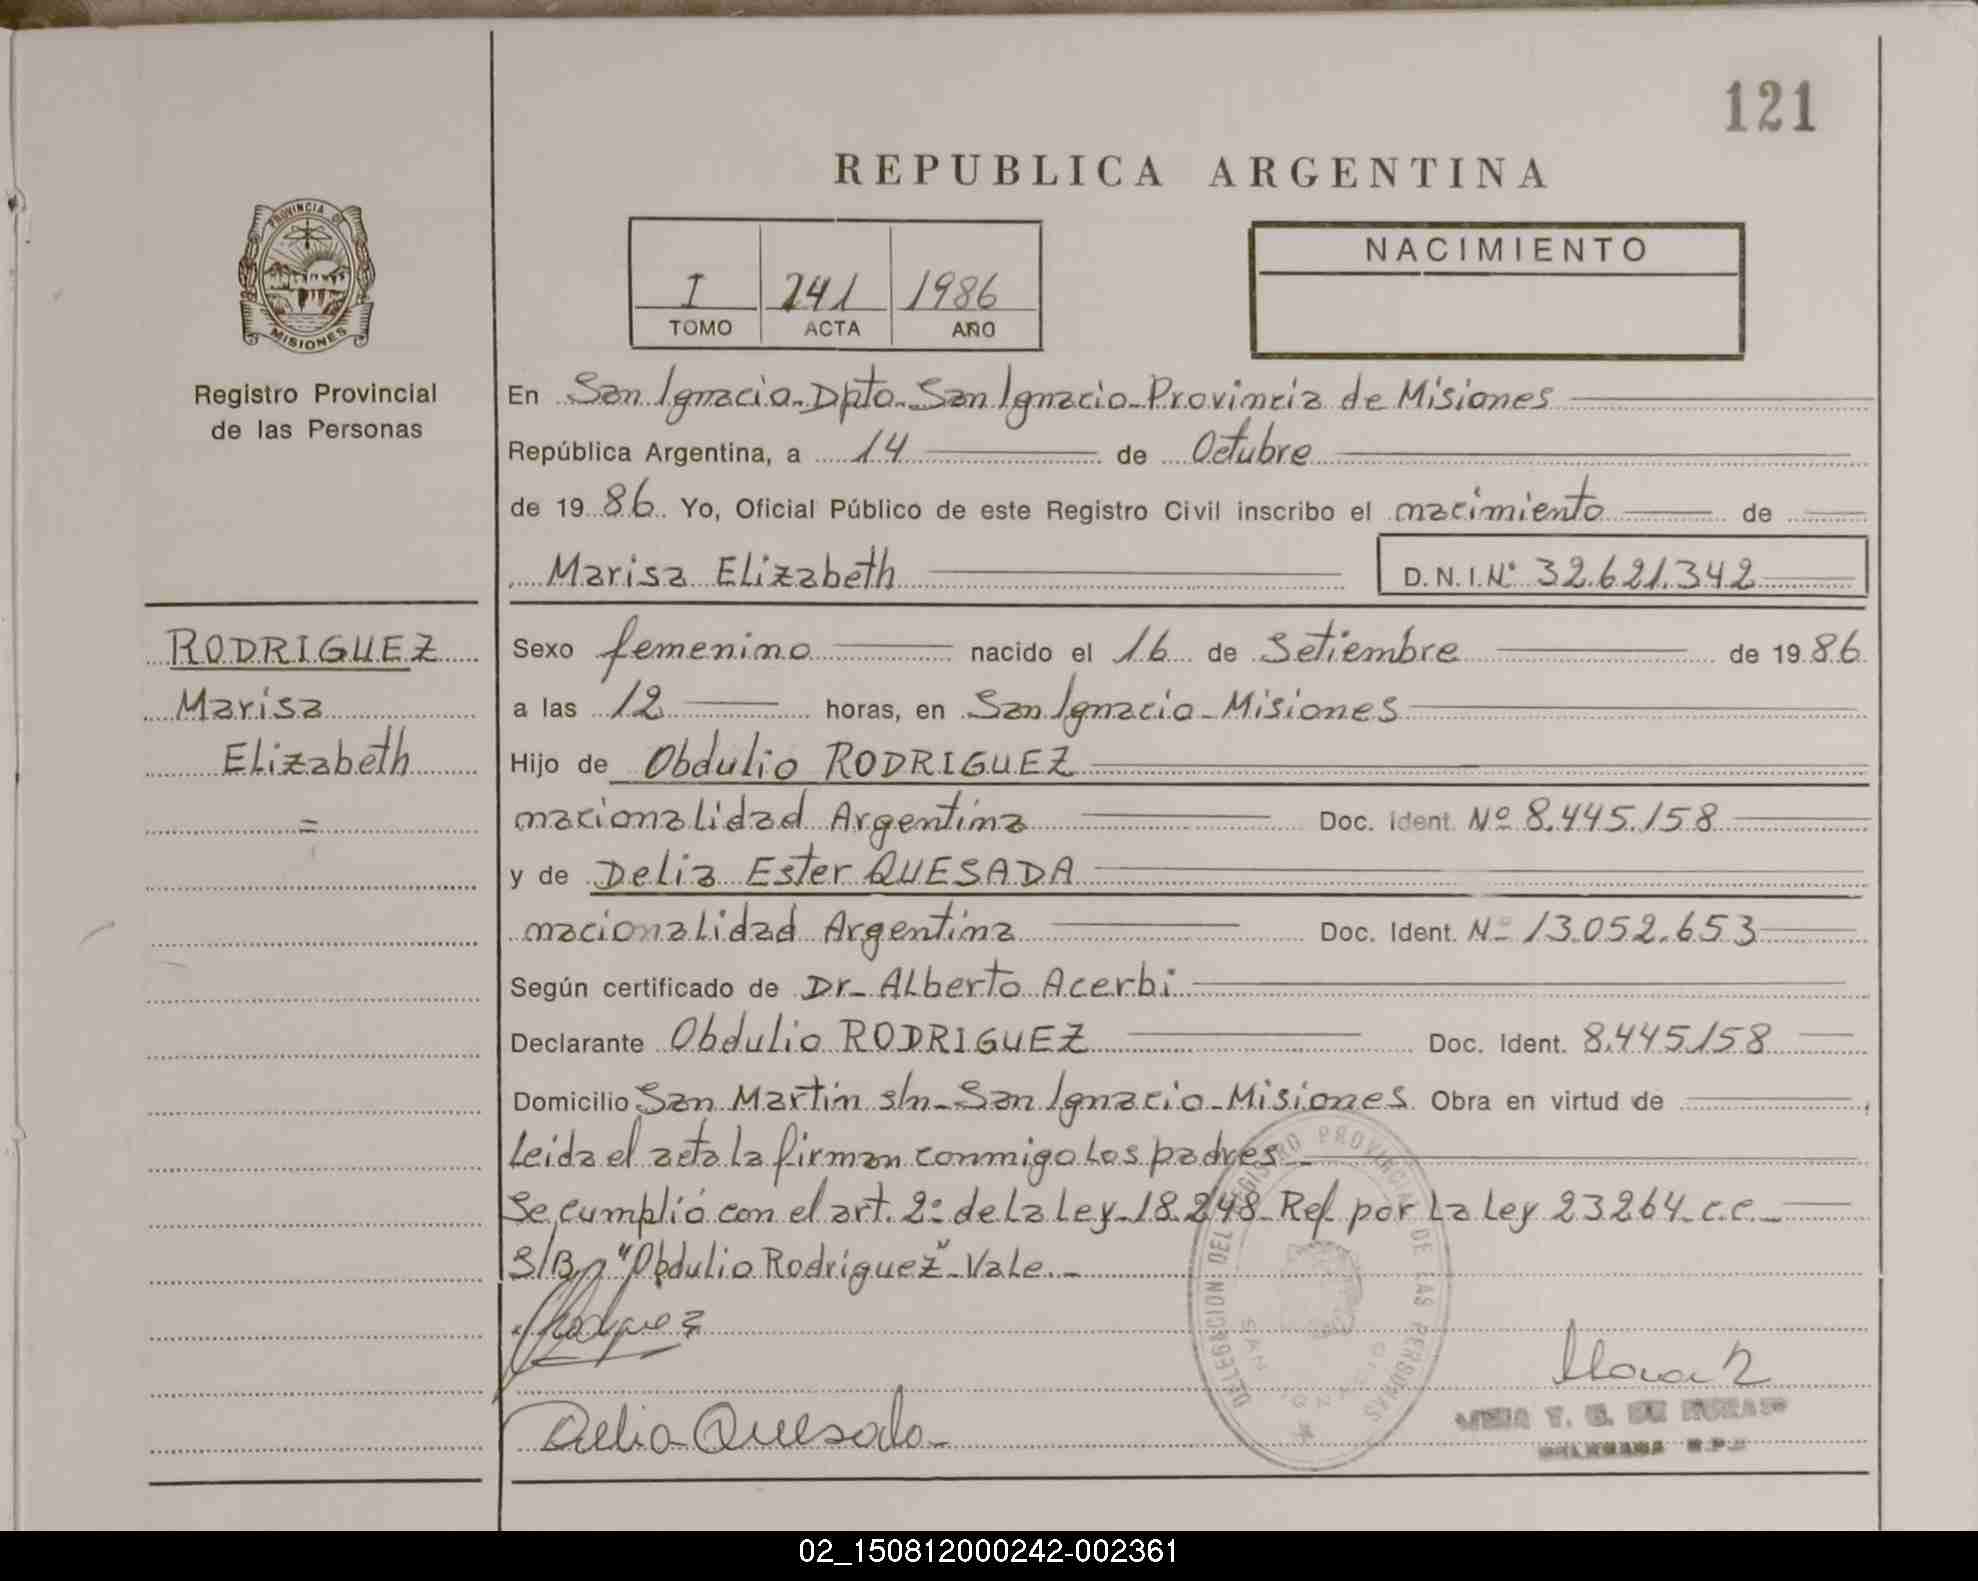 121
REPUBLICA ARGENTINA
PROVINCIA DE
MISIONES
Registro Provincial
de las Personas
I 241 1986
TOMO ACTA AÑO
NACIMIENTO
En San Ignacio-Dpto-San Ignacio-Provincia de Misiones
República Argentina, a 14 de Octubre
de 1986 Yo, Oficial Público de este Registro Civil inscribo el nacimiento de
Marisa Elizabeth D.N.I.Nº 32.621.342
RODRIGUEZ
Marisa
Elizabeth
=
Sexo femenino nacido el 16 de Setiembre de 1986
a las 12 horas, en San Ignacio-Misiones
Hijo de Obdulio RODRIGUEZ
nacionalidad Argentina Doc. Ident. Nº 8.445.158
y de Delia Ester QUESADA
nacionalidad Argentina Doc. Ident. Nº 13.052.653
Según certificado de Dr- Alberto Acerbi
Declarante Obdulio RODRIGUEZ Doc. Ident. 8.445.158
Domicilio San Martin s/n-San Ignacio-Misiones Obra en virtud de
Leida el acta la firman conmigo los padres-
Se cumplió con el art. 2º de la Ley-18.248-Ref. por La Ley 23264-c.c.-
S/B, "Obdulio Rodriguez"-Vale.-
Delia Quesada-
DELEGACION DEL REGISTRO PROVINCIAL DE LAS PERSONAS
SAN IGNACIO
02_150812000242-002361